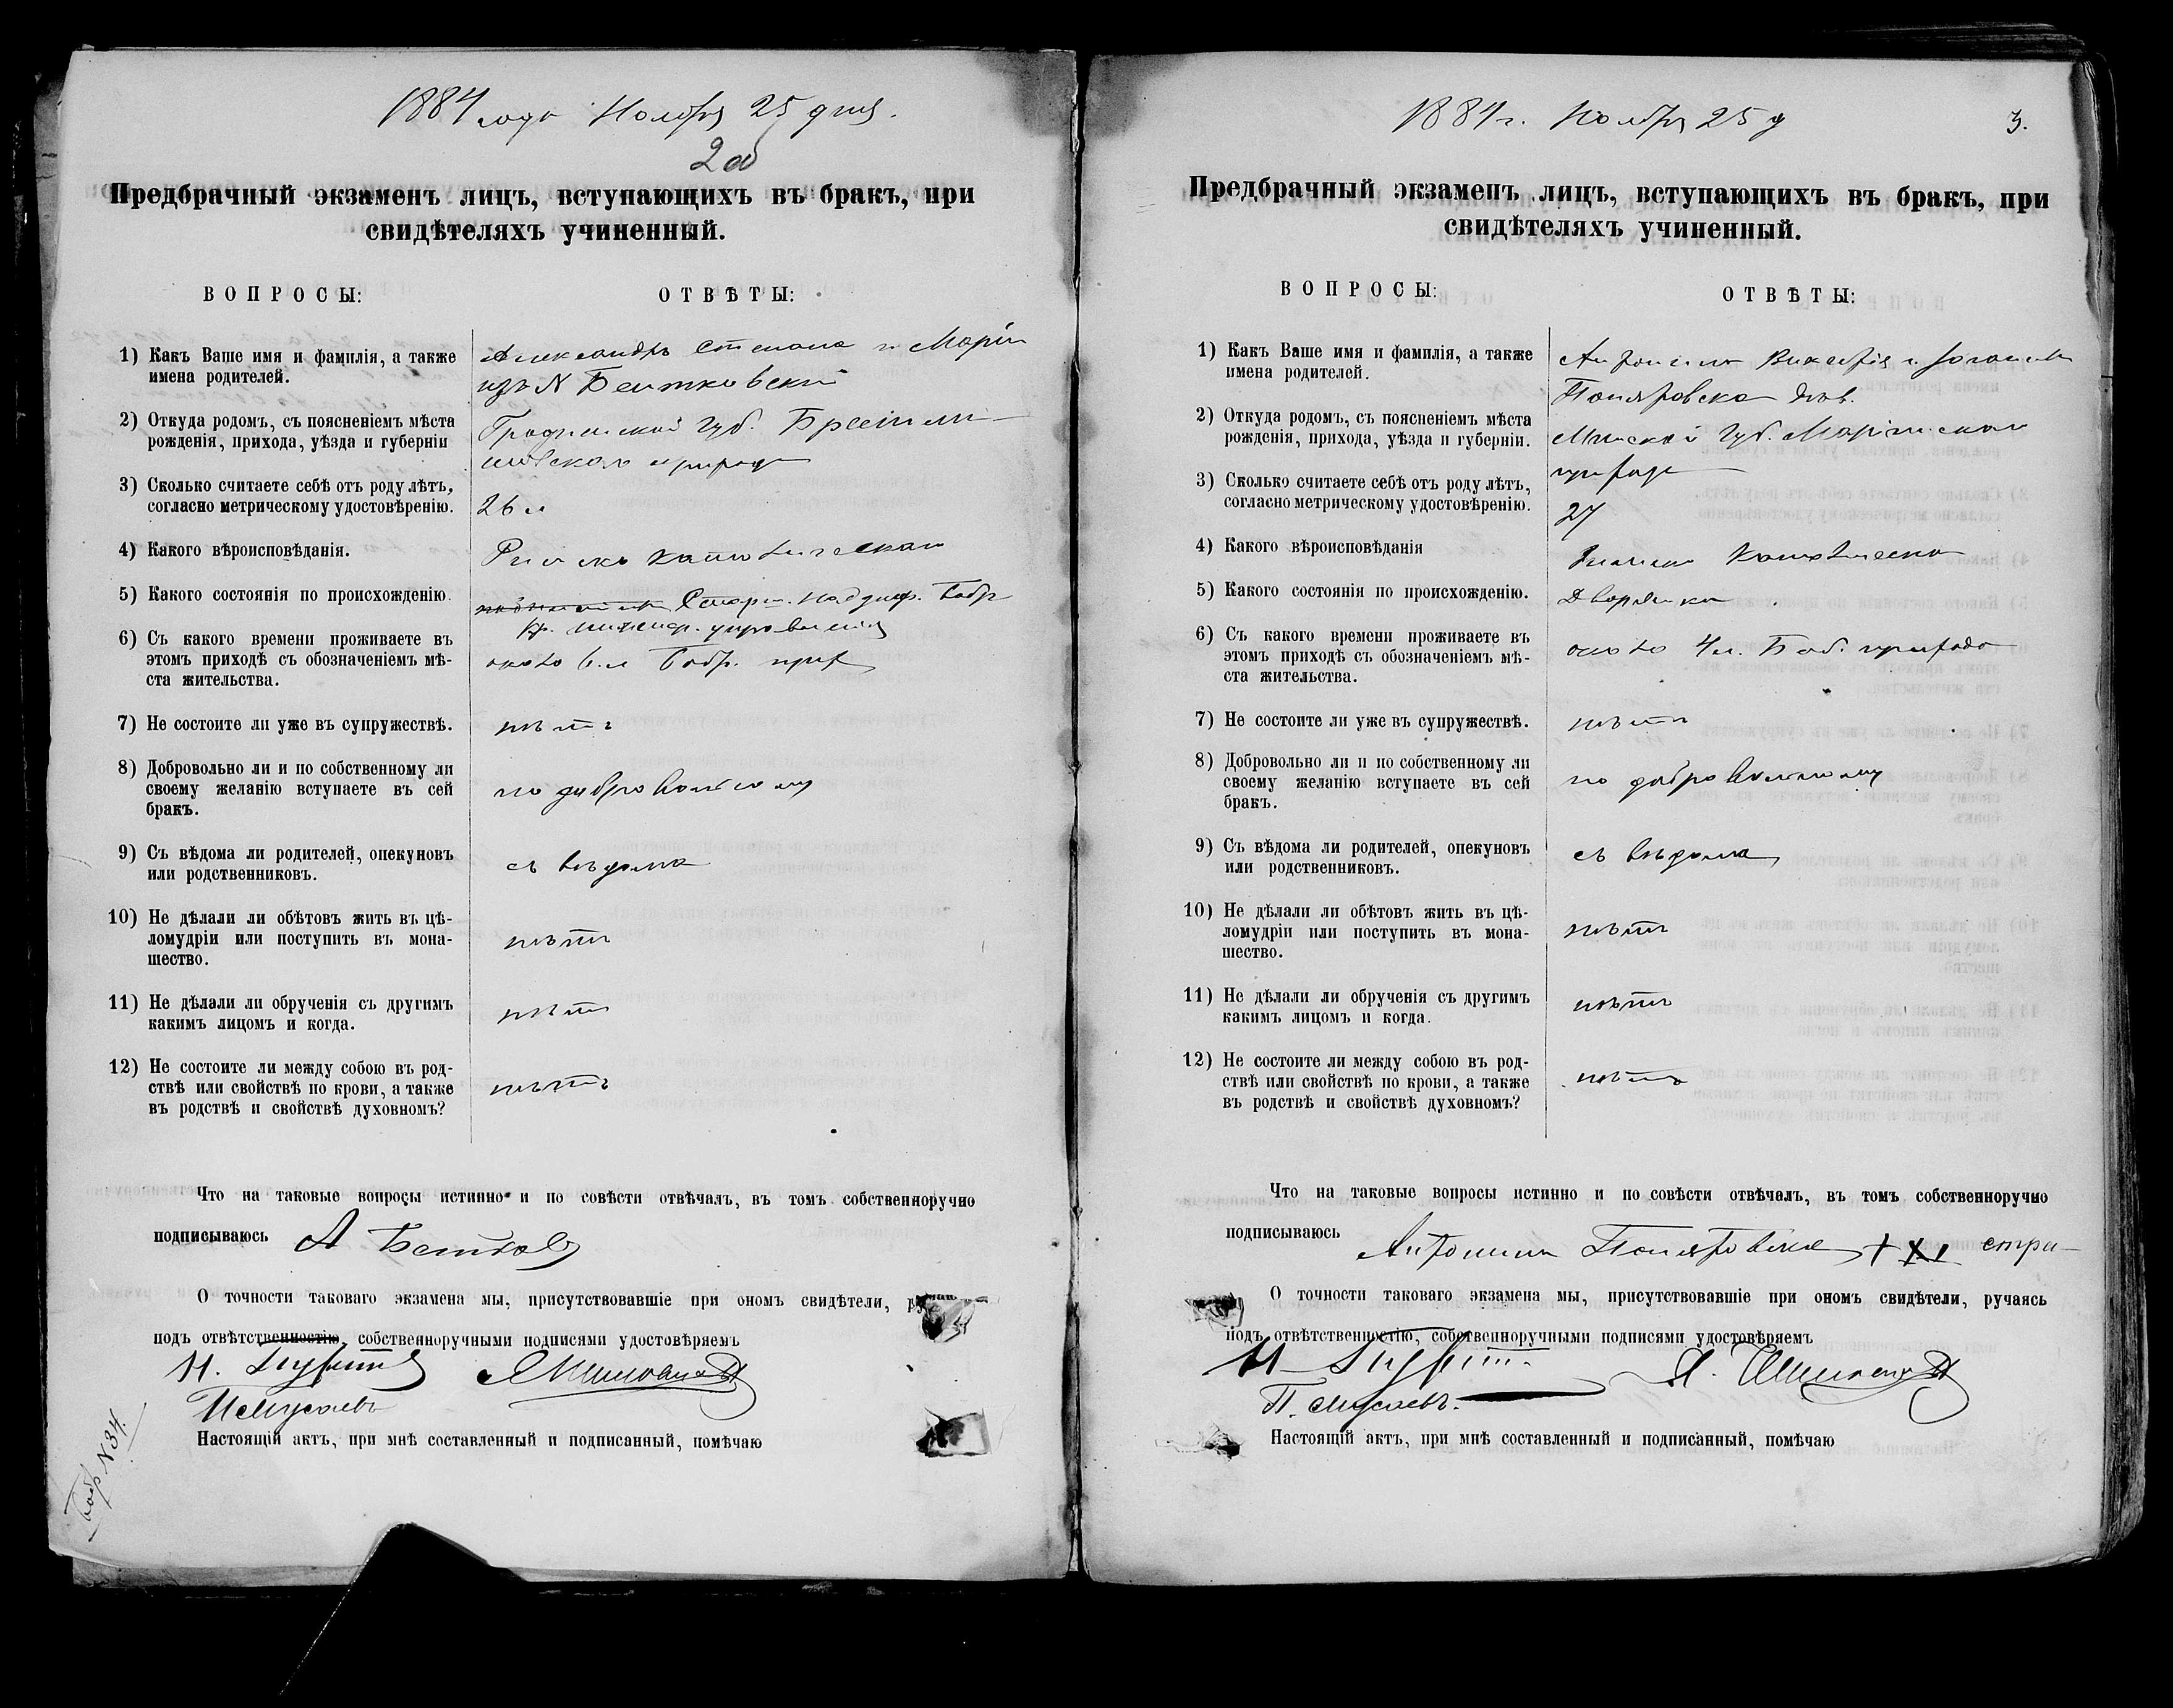 1884 года Ноября 25 дня.
2об
Предбрачный экзаменъ лицъ, вступающихъ въ бракъ, при
свидѣтеляхъ учиненный.
ВОПРОСЫ: ОТВѢТЫ:
1) Какъ Ваше имя и фамилія, а также
имена родителей.
Александръ Степана и Маріи
изъ N Бентковскій
2) Откуда родомъ, съ поясненіемъ мѣста
рожденія, прихода, уѣзда и губерніи
Гродненской Губ.
прихода
3) Сколько считаете себѣ отъ роду лѣтъ,
согласно метрическому удостовѣренію.
26 л
4) Какого вѣроисповѣданія.
Римско Католическаго
5) Какого состоянія по происхожденію.
Старш. Надзир. Бобр
кр. инженер. управленія
6) Съ какого времени проживаете въ
этомъ приходѣ съ обозначеніемъ мѣ-
ста жительства.
около 6 л Бобр. прих
7) Не состоите ли уже въ супружествѣ.
нѣтъ
8) Добровольно ли и по собственному ли
своему желанію вступаете въ сей
бракъ.
по добровольному
9) Съ вѣдома ли родителей, опекуновъ
или родственниковъ.
съ вѣдома
10) Не дѣлали ли обѣтовъ жить въ цѣ-
ломудріи или поступить въ мона-
шество.
нѣтъ
11) Не дѣлали ли обрученія съ другимъ
какимъ лицомъ и когда.
нѣтъ
12) Не состоите ли между собою въ род-
ствѣ или свойствѣ по крови, а также
въ родствѣ и свойствѣ духовномъ?
нѣтъ
Что на таковые вопросы истинно и по совѣсти отвѣчалъ, въ томъ собственноручно
подписываюсь А
О точности таковаго экзамена мы, присутствовавшіе при ономъ свидѣтели,
подъ отвѣтственностію, собственноручными подписями удостовѣряемъ
Н.
Настоящій актъ, при мнѣ составленный и подписанный, помѣчаю
Бобр N 34.
1884 г. Ноября 25 д
3.
Предбрачный экзаменъ лицъ, вступающихъ въ бракъ, при
свидѣтеляхъ учиненный.
ВОПРОСЫ: ОТВѢТЫ:
1) Какъ Ваше имя и фамилія, а также
имена родителей.
Антонина
2) Откуда родомъ, съ поясненіемъ мѣста
рожденія, прихода, уѣзда и губерніи.
Минской Губ.
прихода
3) Сколько считаете себѣ отъ роду лѣтъ,
согласно метрическому удостовѣренію.
27
4) Какого вѣроисповѣданія
Римско Католическа
5) Какого состоянія по происхожденію.
Дворянка
6) Съ какого времени проживаете въ
этомъ приходѣ съ обозначеніемъ мѣ-
ста жительства.
около 4 л. Боб. прихода
7) Не состоите ли уже въ супружествѣ.
нѣтъ
8) Добровольно ли и по собственному ли
своему желанію вступаете въ сей
бракъ.
по добровольному
9) Съ вѣдома ли родителей, опекуновъ
или родственниковъ.
съ вѣдома
10) Не дѣлали ли обѣтовъ жить въ цѣ-
ломудріи или поступить въ мона-
шество.
нѣтъ
11) Не дѣлали ли обрученія съ другимъ
какимъ лицомъ и когда.
нѣтъ
12) Не состоите ли между собою въ род-
ствѣ или свойствѣ по крови, а также
въ родствѣ и свойствѣ духовномъ?
нѣтъ
Что на таковые вопросы истинно и по совѣсти отвѣчалъ, въ томъ собственноручно
подписываюсь Антонина
О точности таковаго экзамена мы, присутствовавшіе при ономъ свидѣтели, ручаясь
подъ отвѣтственностію, собственноручными подписями удостовѣряемъ
Н.
П.
Настоящій актъ, при мнѣ составленный и подписанный, помѣчаю